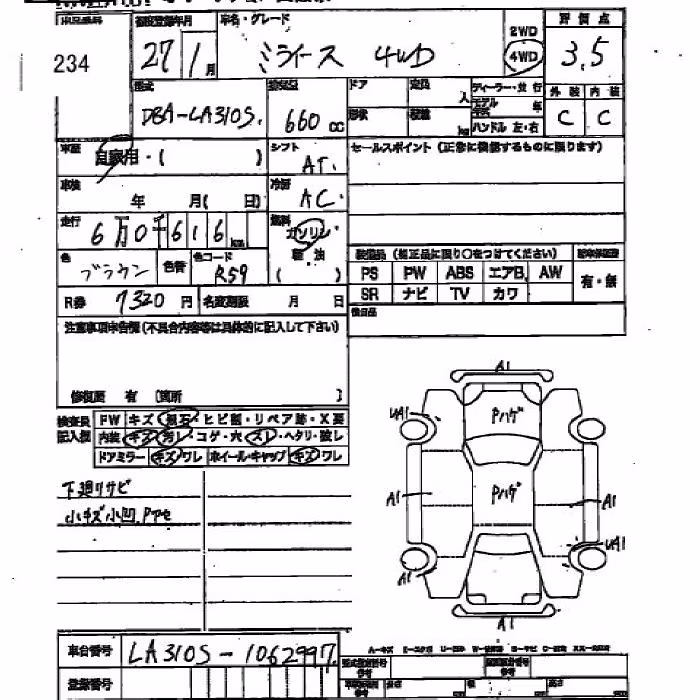 出品番号 初度登録年月 車名・グレード 2WD 評価点
234 27/1月 ミライース 4WD 4WD 3.5
型式 排気量 ドア 定員 人 ディーラー・並行 外装 内装
DBA-LA310S. 660cc 形状 積載 kg モデル 年 C C
ハンドル 左・右
車歴 自家用・( ) シフト AT. セールスポイント(正常に機能するものに限ります)
車検 年 月( 日) 冷房 AC.
走行 6万0千616km 燃料 ガソリン
軽油
( )
色 ブラウン 色替 色コード R59
装備品(純正品に限り○をつけてください)
PS PW ABS エアB AW 有・無
SR ナビ TV カワ
R券 7320円 名変期限 月 日
後日品
注意事項申告欄(不具合内容等は具体的に記入して下さい)
修復歴 有 〔箇所 〕
検査員記入欄 FW キズ・飛石・ヒビ割・リペア跡・X要
内装 キズ・汚レ・コゲ・穴・スレ・ヘタリ・欠し
ドアミラー キズ・ワレ ホイール・キャップ キズ・ワレ
下廻リサビ
小キズ小凹.Pアセ
A1
UA1
Pハゲ
A1 Pハゲ A1
UA1
A1
A1
車台番号 LA310S-1062997
登録番号
長さ cm 幅 cm 高さ cm